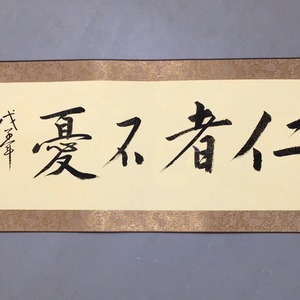 仁者不憂
戊子年